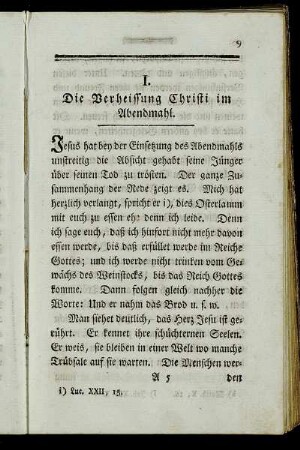 9
I.
Die Verheissung Christi im
Abendmahl.
Jesus hat bey der Einsetzung des Abendmahls
unstreitig die Absicht gehabt seine Jünger
über seinen Tod zu trösten. Der ganze Zu-
sammenhang der Rede zeigt es. Mich hat
herzlich verlangt, spricht er i), dies Osterlamm
mit euch zu essen ehe denn ich leide. Denn
ich sage euch, daß ich hinfort nicht mehr davon
essen werde, bis daß erfüllet werde im Reiche
Gottes; und ich werde nicht trinken vom Ge-
wächs des Weinstocks, bis das Reich Gottes
komme. Dann folgen gleich nachher die
Worte: Und er nahm das Brod u. s. w.
Man siehet deutlich, das Herz Jesu ist ge-
rührt. Er kennet ihre schüchternen Seelen.
Er weis, sie bleiben in einer Welt wo manche
Trübsale auf sie warten. Die Menschen wer-
A 5 den
i) Luc. XXII, 15.